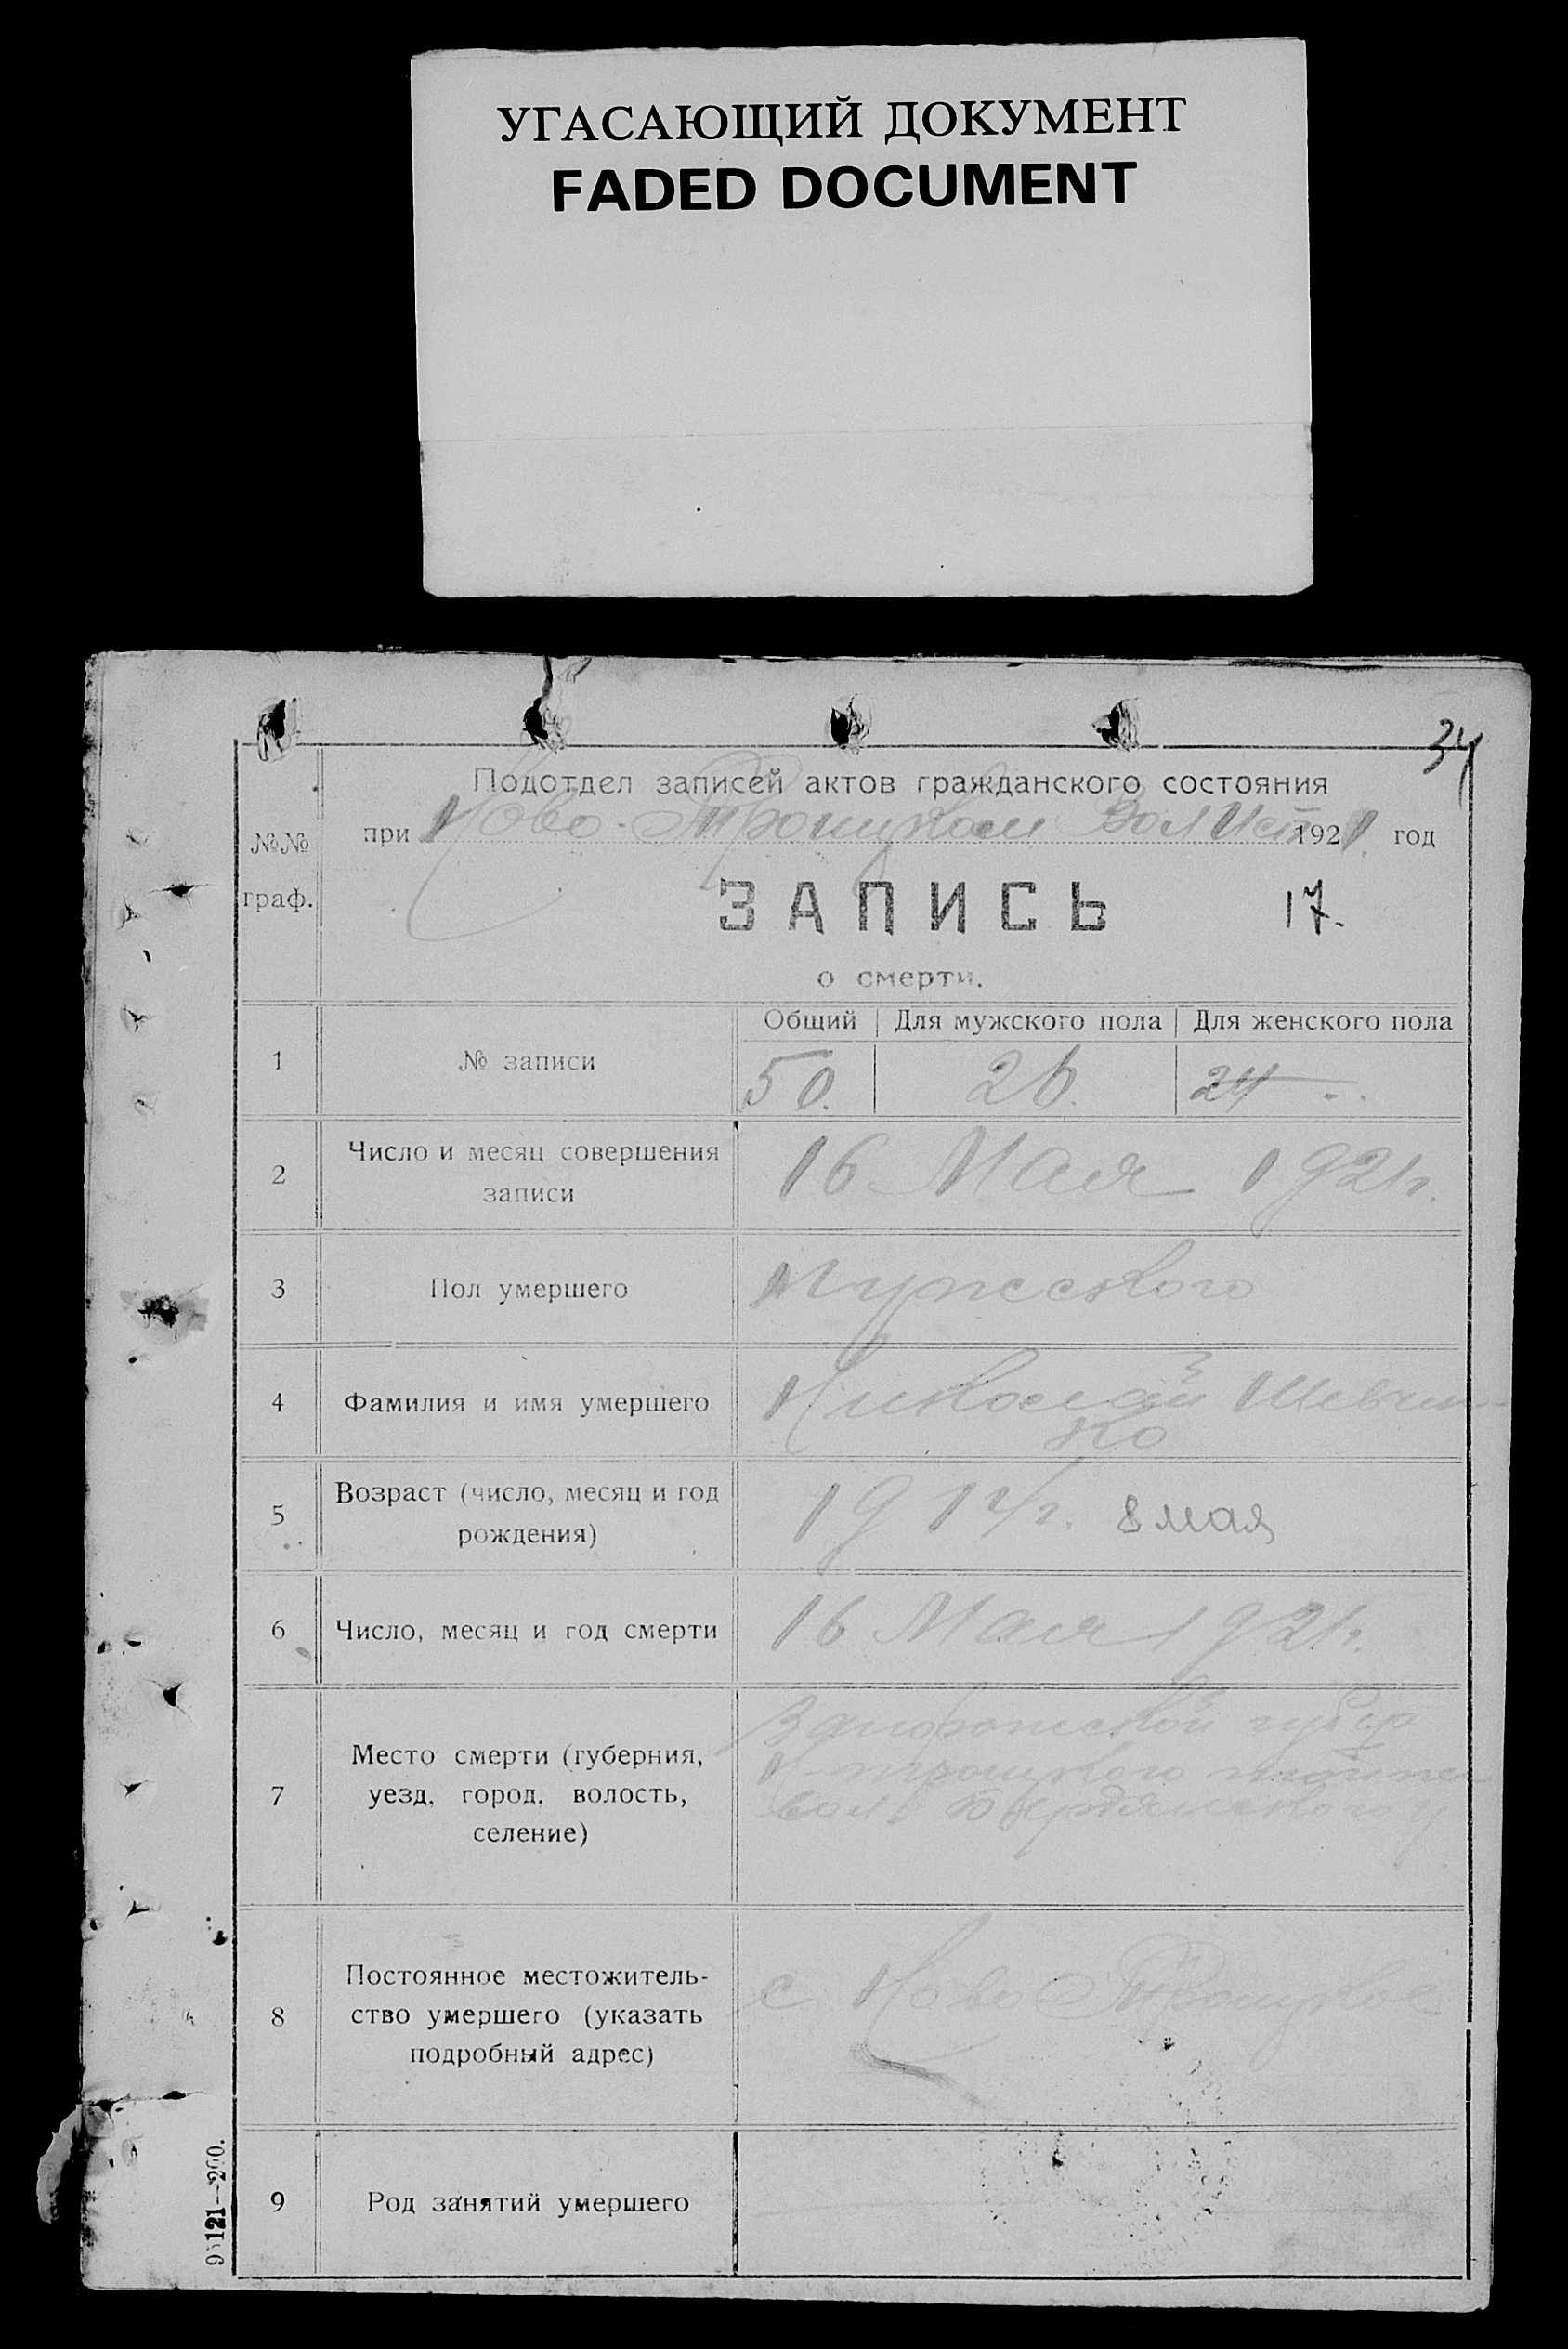 УГАСАЮЩИЙ ДОКУМЕНТ
FADED DOCUMENT
34
Подотдел записей актов гражданского состояния
№№ граф.
при Ново-Троицком Вол Исп 1921 год
ЗАПИСЬ 17.
о смерти.
Общий Для мужского пола Для женского пола
1 № записи 50. 26. 24
2 Число и месяц совершения
записи
16 Мая 1921г.
3 Пол умершего Мужеского
4 Фамилия и имя умершего Николай Шевчен-
ко
5 Возраст (число, месяц и год
рождения)
8 мая
6 Число, месяц и год смерти 16 Мая 1921г.
7 Место смерти (губерния,
уезд, город, волость,
селение)
Запорожской губер
вол. Бердянского у
8 Постоянное местожитель-
ство умершего (указать
подробный адрес)
с Ново Троицкое
9 Род занятий умершего